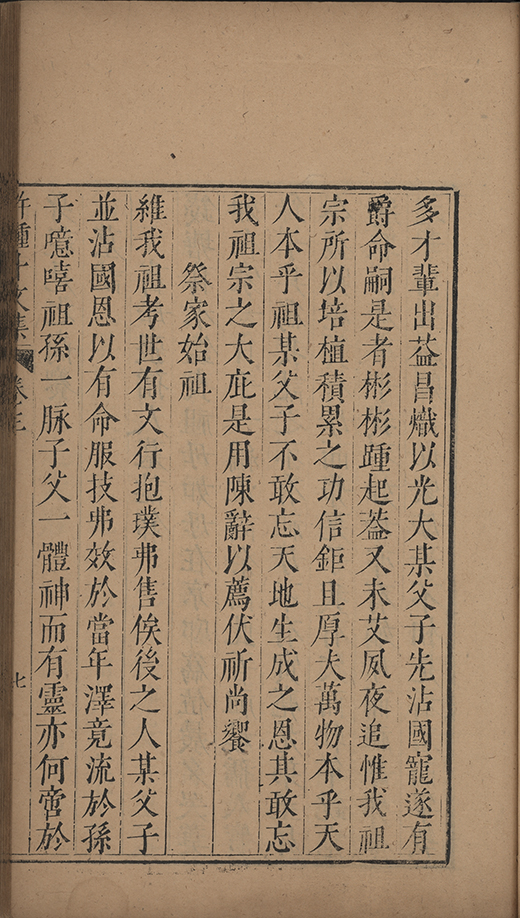 多才輩出益昌熾以光大某父子先沾國寵遂有
爵命嗣是者彬彬踵起葢又未艾夙夜追惟我祖
宗所以培植積累之功信鉅且厚夫萬物本乎天
人本乎祖某父子不敢忘天地生成之恩其敢忘
我祖宗之大庇是用陳辭以薦伏祈尚饗
祭家始祖
維我祖考世有文行抱璞弗售俟後之人某父子
並沾國恩以有命服技弗效於當年澤竟流於孫
子噫嘻祖孫一脉子父一體神而有靈亦何啻於
許鍾斗文集 卷之 七